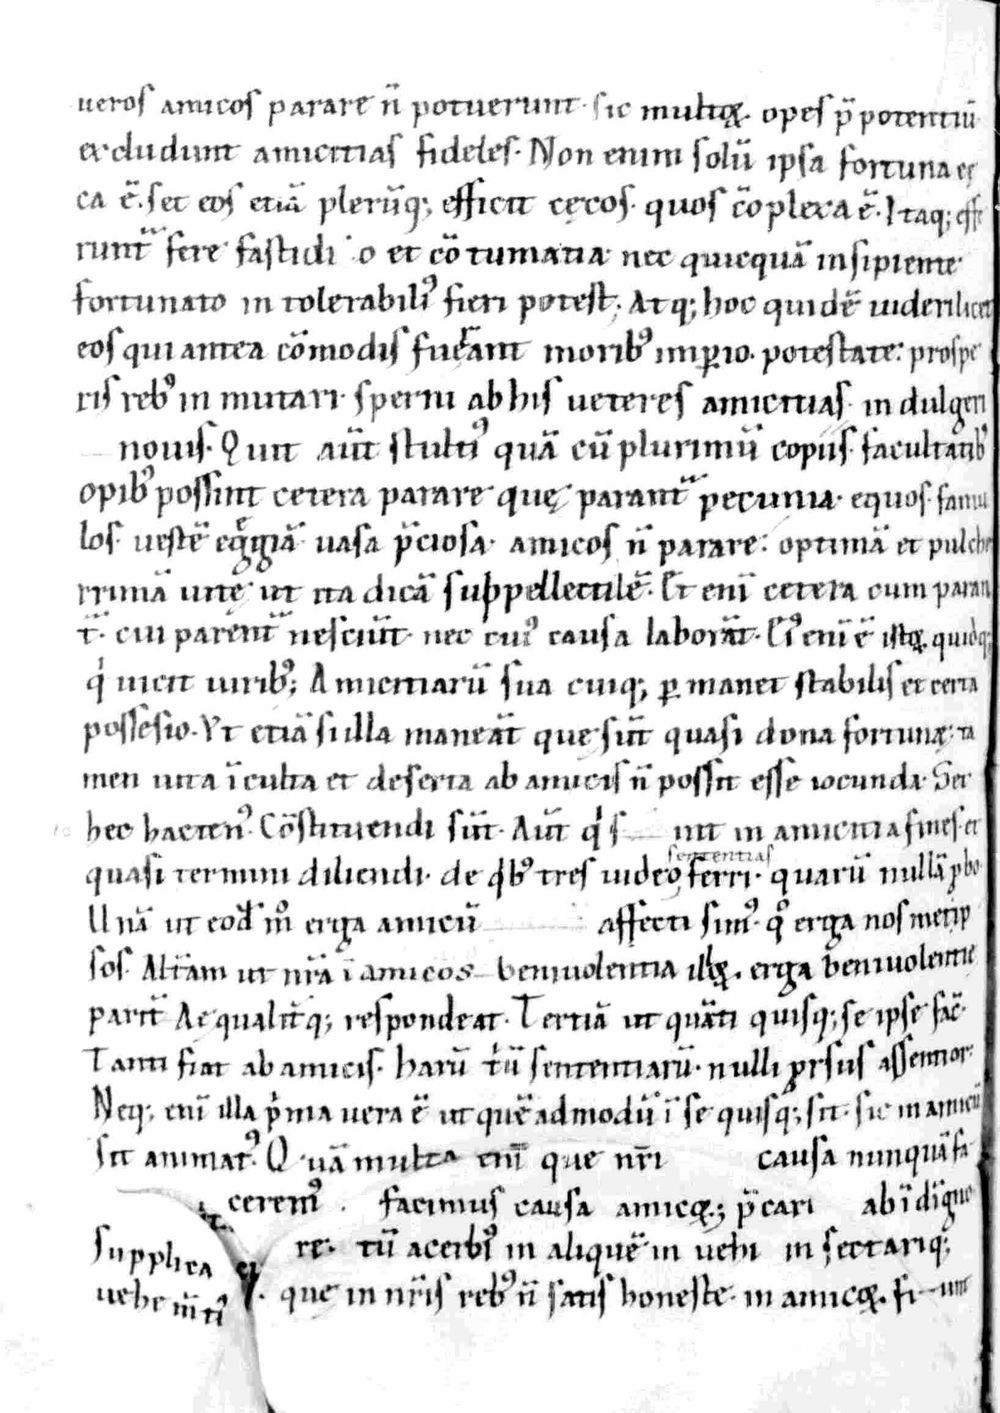 ueros amicos parare n̄ potuerunt· sic multoꝝ· opes p̄potentiū
excludunt amicitias fideles· Non enim solū ipsa fortuna ce
ca ē· set eos etiā plerūq; efficit cęcos· quos cōplexa ē· Itaq; effe
runt̄ fere fastidi o et cōtumatia nec quicquā insipiente
fortunato intolerabiliꝰ fieri potest· Atq; hoc quidē uideri licet
eos qui antea cōmodis fuerant moribꝰ imꝑio· potestate· prospe
ris rebꝰ inmutari· sperni ab his ueteres amicitias· indulgeri
nouis· Quit aūt stultiꝰ quā cū plurimū copiis· facultatibꝰ
opibꝰ possint cetera parare quę parant̄ pecunia· equos· famu
los· uestē egͥgiā uasa p̄ciosa· amicos n̄ parare· optimā et pulche
rrimā uitę ut ita dicā suppellectilē· Et enī cetera cum paran
t̄· cui parent̄ nesciūt· nec cuiꝰ causa laborāt· Eiꝰ enī ē istoꝝ quidq;
qͥ uicit uiribꝰ; Amicitiarū sua cuiq; ꝑmanet stabilis et certa
possesio· Vt etiā si illa maneāt que sūt quasi dona fortunę· ta
men uita īculta et deserta ab amicis n̄ possit esse iocunda· Set
hec hactenꝰ· Cōstituendi sūt· Aūt qͥ s int in amicitia fines· et
quasi termini diliendi· de qͥbꝰ tres uideo sententias ferri· quarū nullā ꝓbo
Unā ut eodē mͦ erga amicū affecti simꝰ· qͦ erga nosmetip
sos· Altam ut nr̄a ī amicos beniuolentia illoꝝ· erga beniuolentie
parit̄ Aequalit̄q; respondeat· Tertiā ut quāti quisq; se ipse fac̄·
Tanti fiat ab amicis· harū tͥū sententiarū· nulli ꝓrsus assentior·
Neq; enī illa pͥma uera ē ut quēadmodū ī se quisq; sit· sic in amicū
sit animatꝰ· Quā multa enī que nr̄i causa nunquā fa
ceremꝰ· facimus causa amicoꝝ; p̄cari ab īdīgno
re· tū acerbiꝰ in aliquē inuehi insectariq;
supplica
uehem̄tiꝰ
que in nr̄is rebꝰ n̄ satis honeste· in amicoꝝ· fi unt